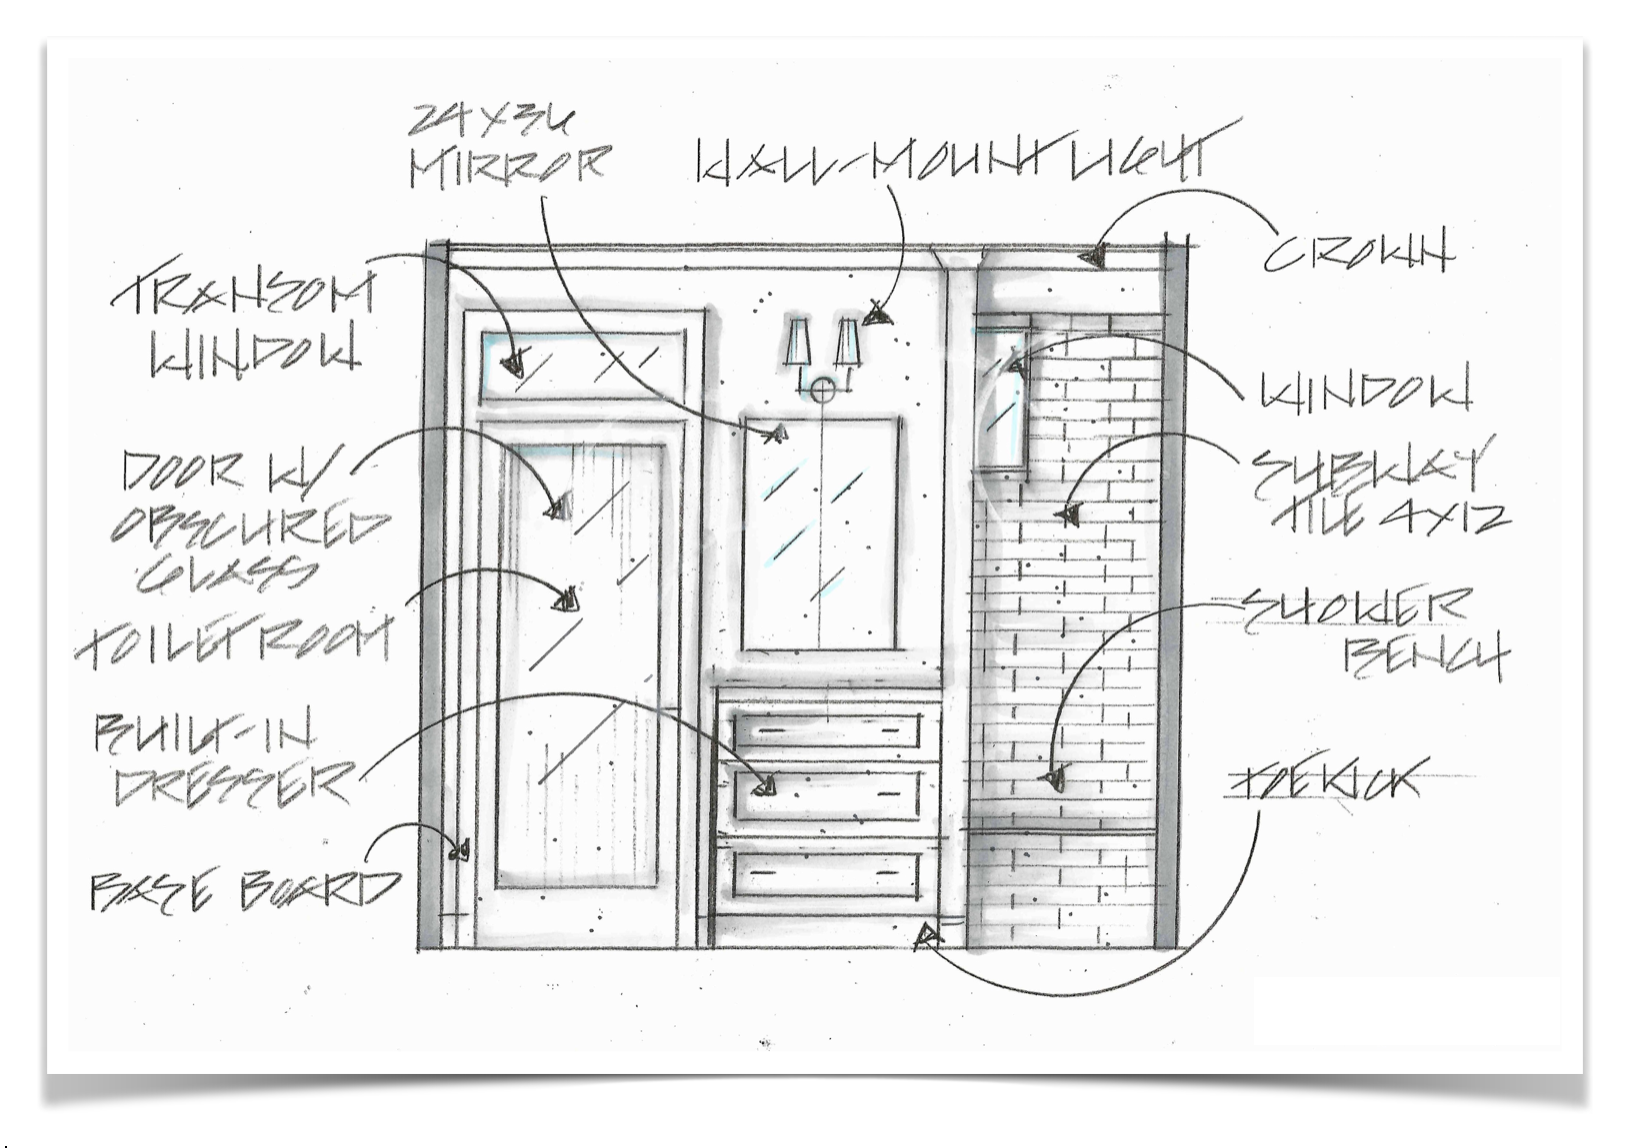 24X36
MIRROR
WALL-MOUNT LIGHT
CROWN
TRANSOM
WINDOW
WINDOW
DOOR W/
OBSCURED
GLASS
SUBWAY
TILE 4X12
TOILET ROOM
SHOWER
BENCH
BUILT-IN
DRESSER
TOEKICK
BASE BOARD